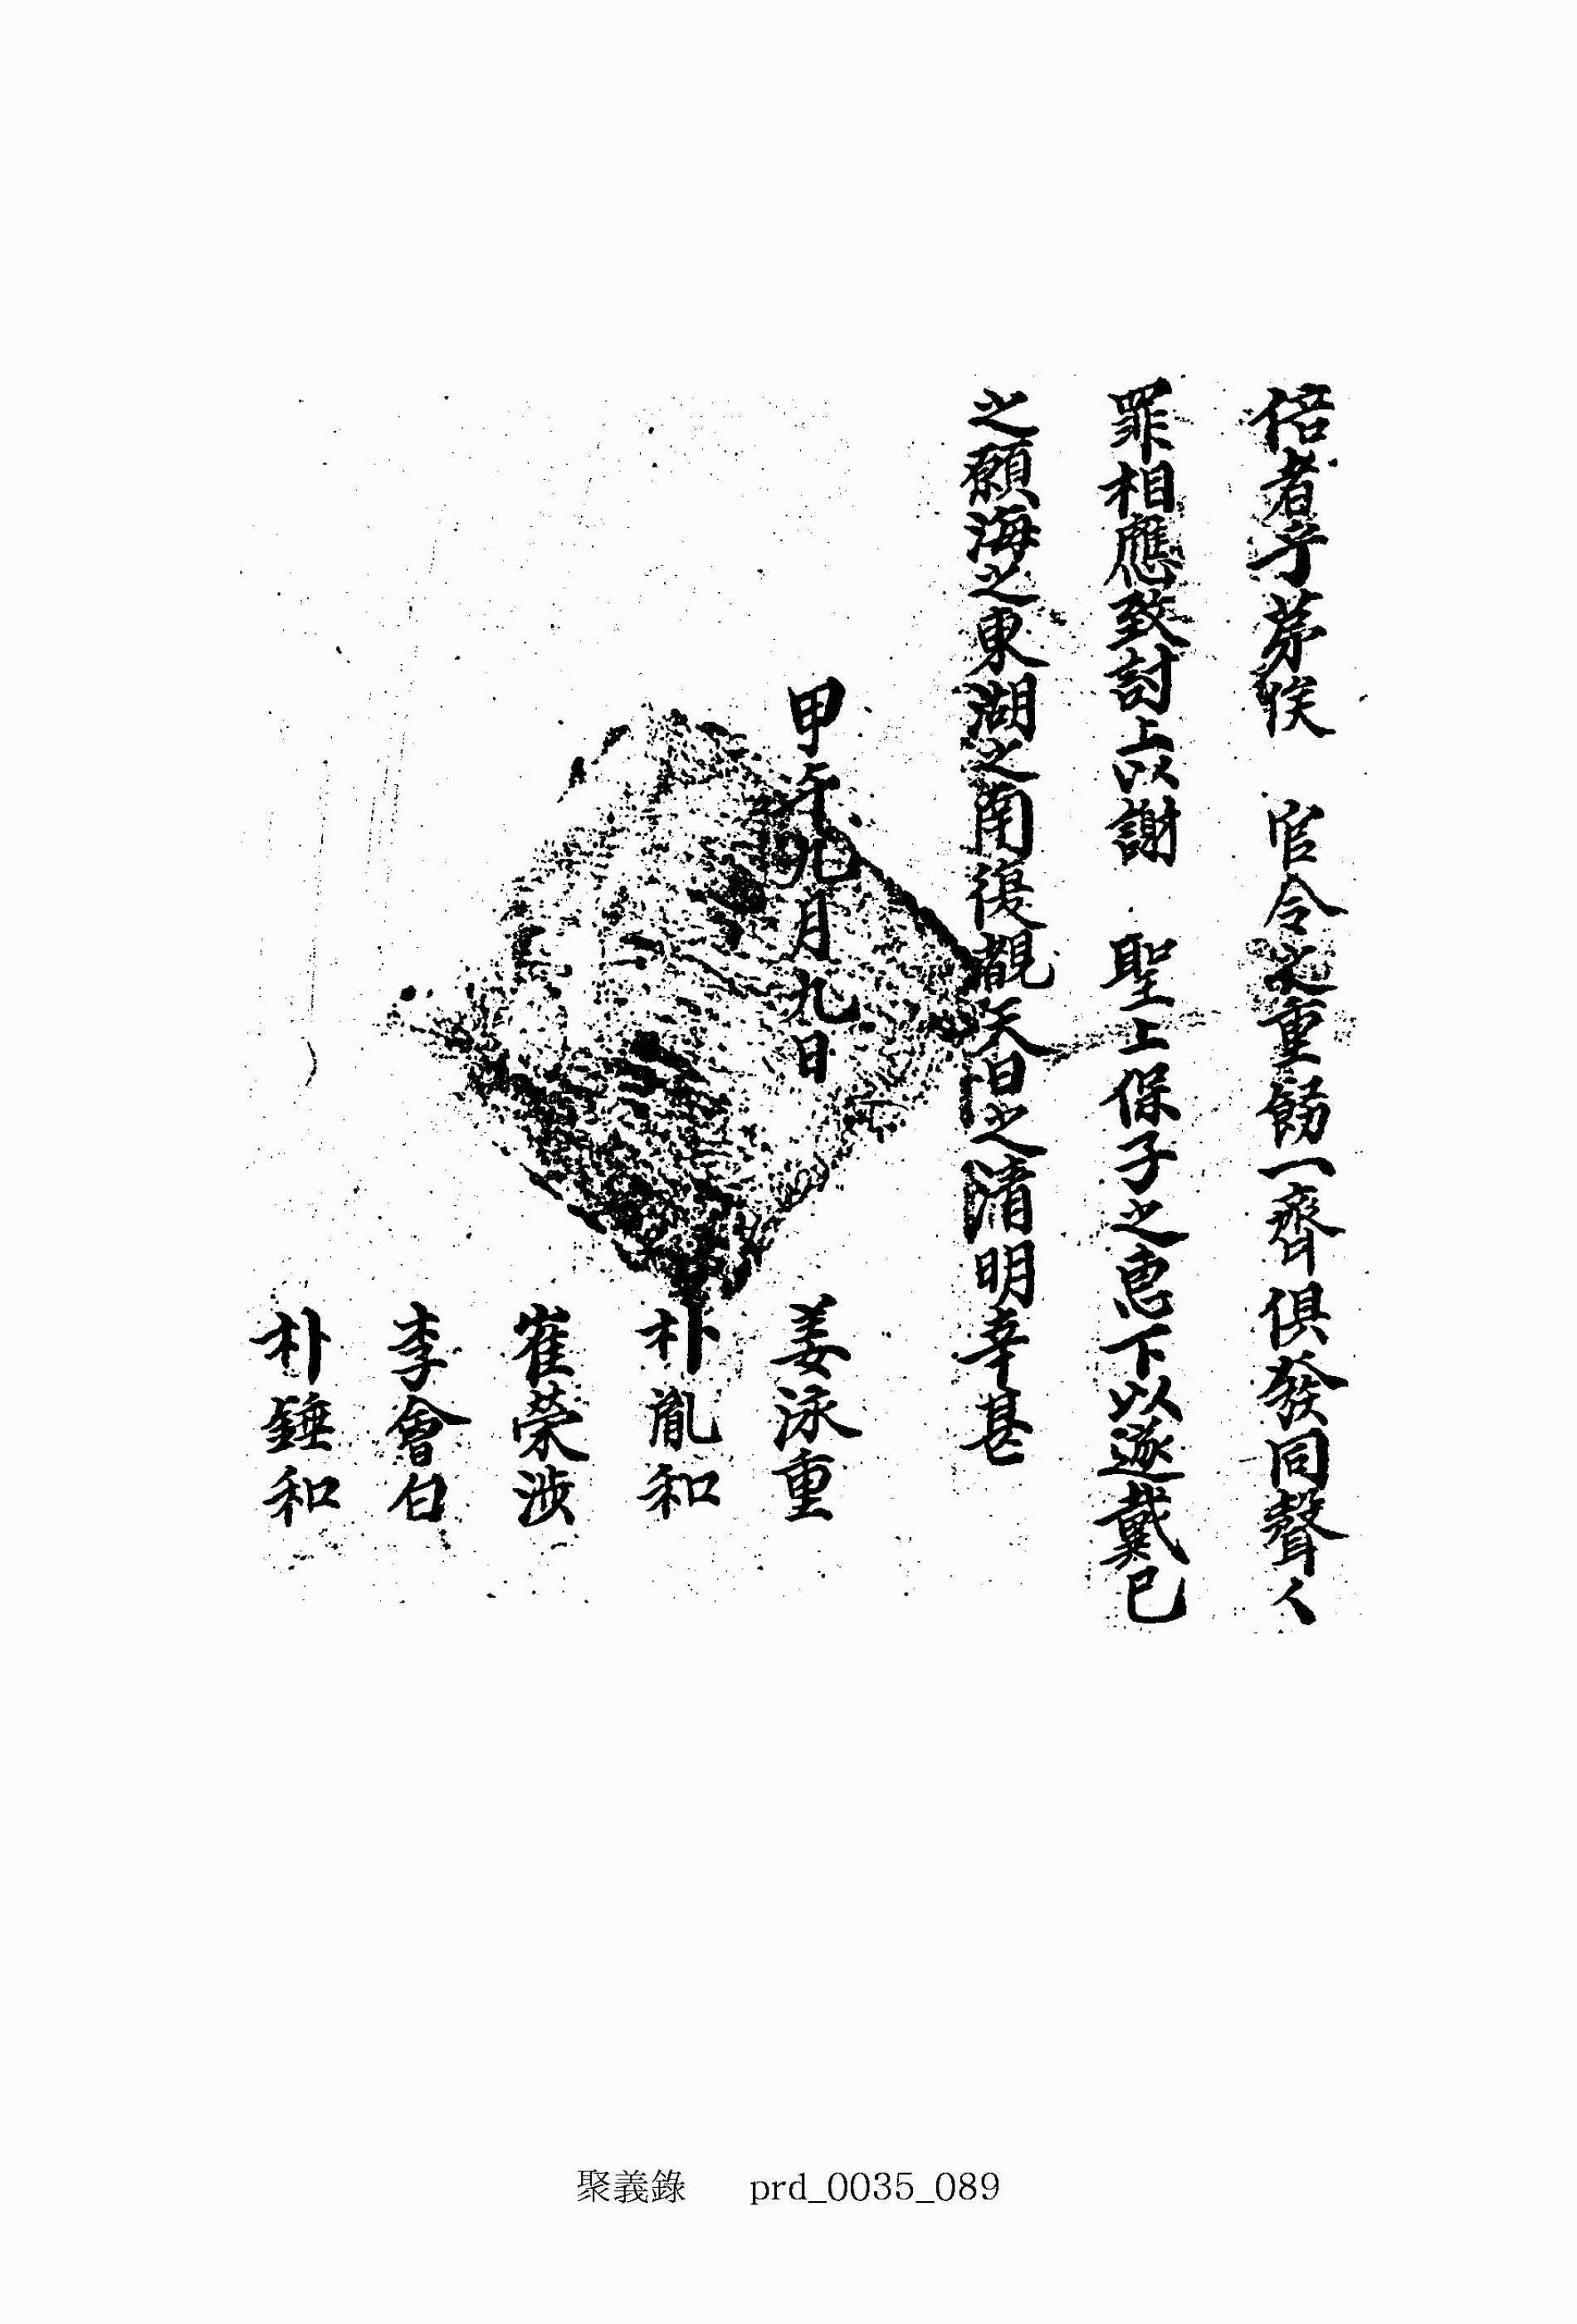 倍者乎茅俟 官令之重飭一齊俱發同聲人
罪相應致討上以謝 聖上保子之恩下以遂戴己
之願海之東湖之南復覩天日之淸明幸甚
甲午九月九日
姜泳重
朴胤和
崔榮涉
李會白
朴錘和
聚義錄 prd_0035_089